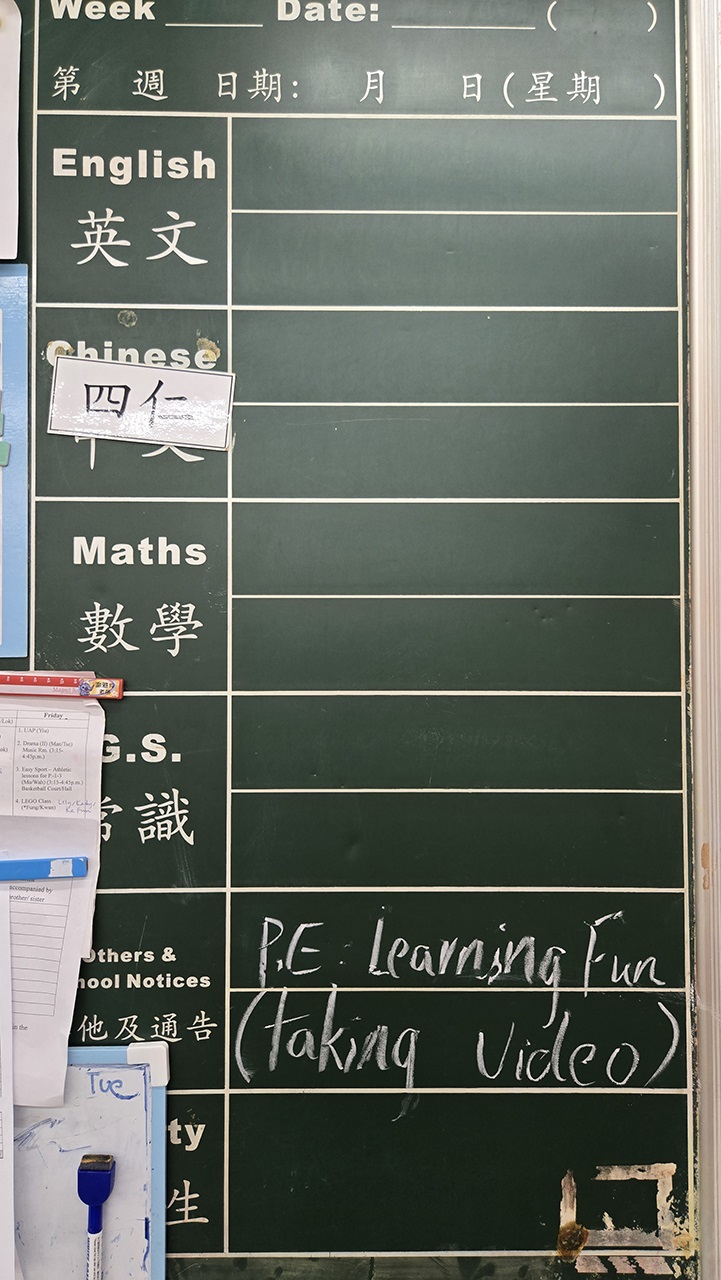 Week Date: ( )
第 週 日期: 月 日(星期 )
English
英文
Chinese
四仁
Maths
數學
G.S.
常識
Friday
1. UAP (Yia)
2. Drama (II) (Man/Tsc)
Music Rm. (3:15-
4:45p.m.)
3. Easy Sport – Athletic
lessons for P.1-3
(Ma/Wah) (3:15-4:45p.m.)
Basketball Court/Hall
4. LEGO Class
(*Fung/Kwan)
accompanied by
rother/ sister
in the
Others &
hool Notices
他及通告
P.E: Learning Fun
(taking Video)
Tue
ty
生